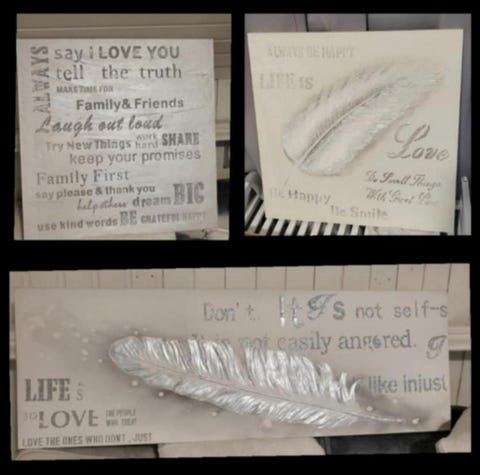 ALWAYS
say I LOVE YOU
tell the truth
MAKE TIME FOR
Family& Friends
Laugh out loud
Try New Things work hard SHARE
keep your promises
Family First
say please & thank you
help others dream BIG
use kind words BE GRATEFUL HAPPY
ALWAYS BE HAPPY
LIFE IS
Love
Do Small Things
With Great Love
Be Happy
Be Smile
Don't. It Is not self-s
not easily angered.
like injust
LIFE is
LOVE THE PEOPLE
WHO TREAT
LOVE THE ONES WHO DON'T, JUST